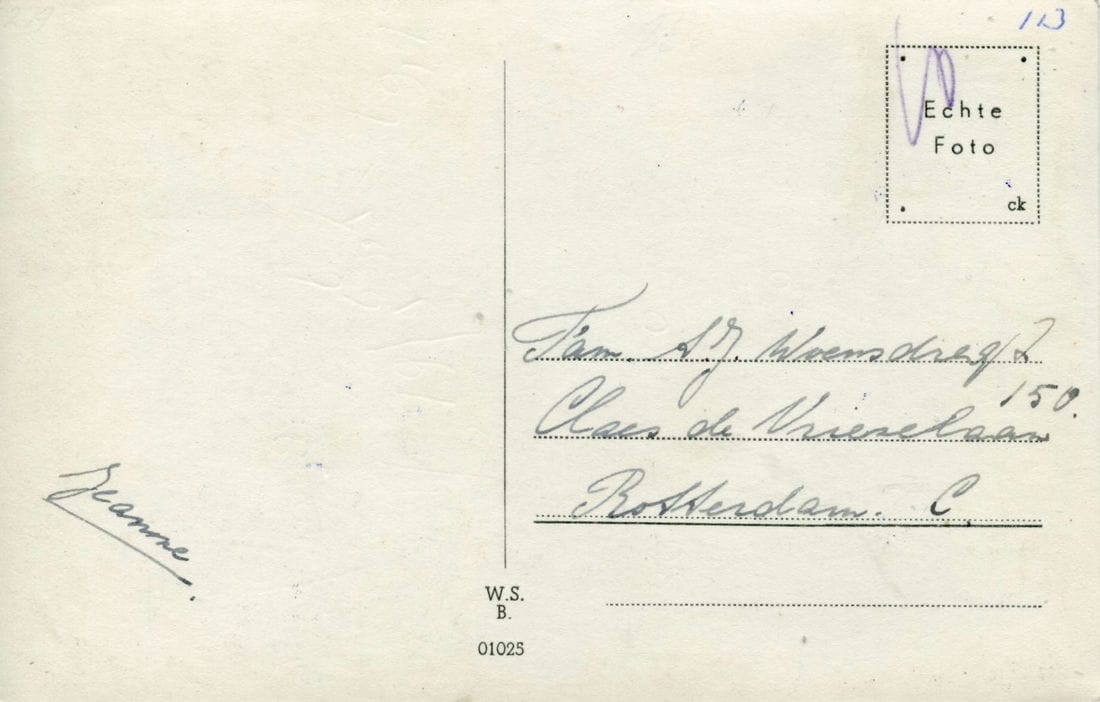 113
Echte
Foto
ck
Fam. A.J. Woensdregt
150.
Claes de Vrieselaan
Rotterdam. C.
Jeanne.
W.S.
B.
01025